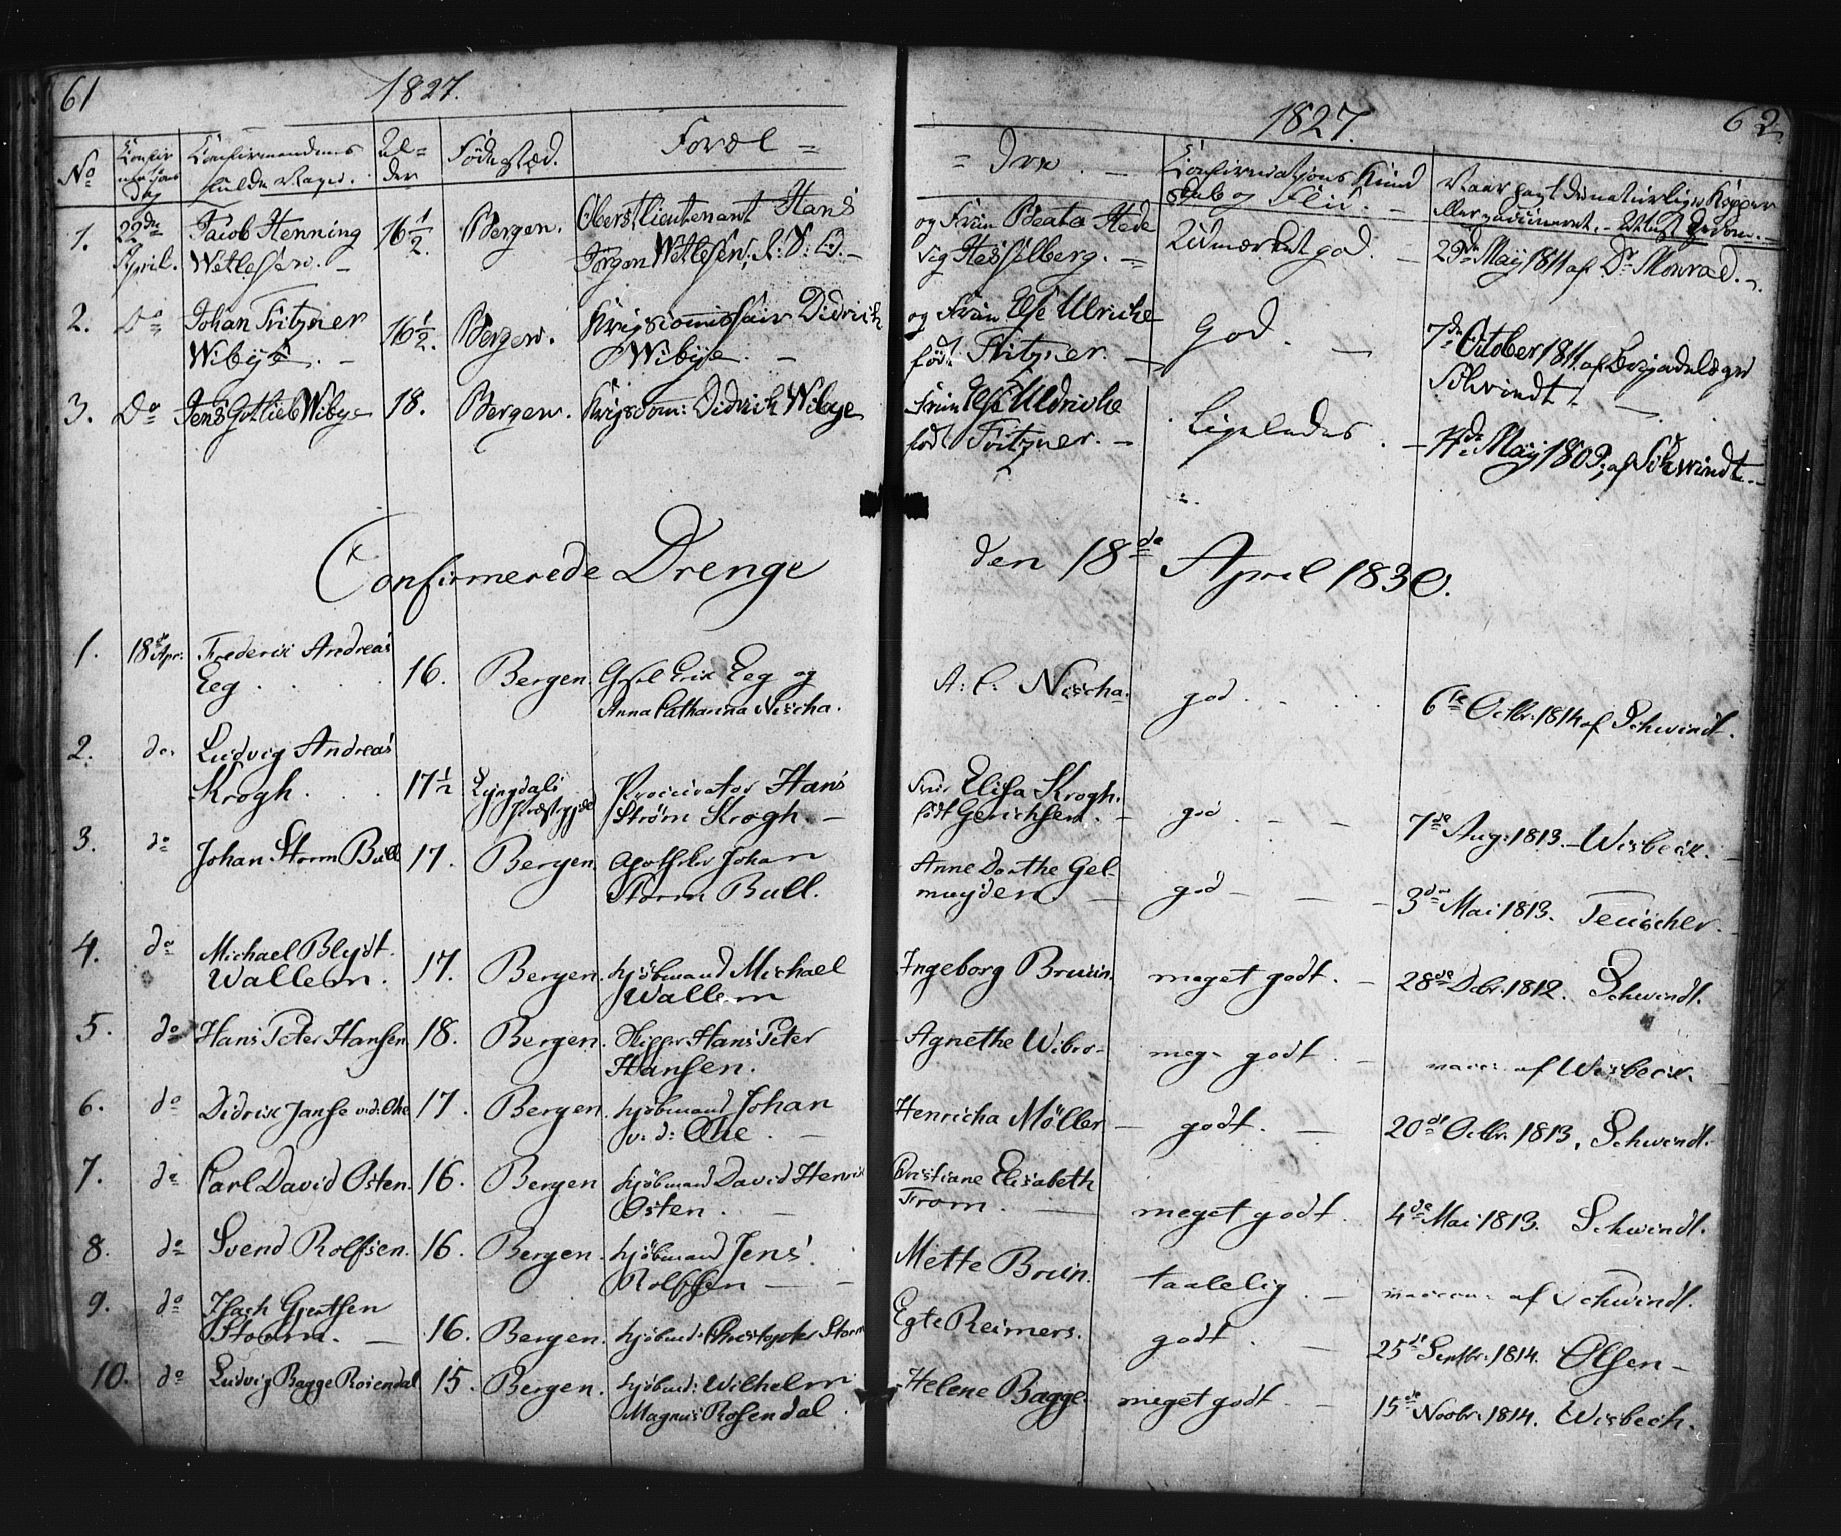 61
1827.
No
Confir
mations
Dag
Confirmandens
fulde Navn.
Al=
der
Fødested.
Foræl=
22de
1. Jacob Henning 16½. Bergen. Oberstlieutenant Hans
April. Wetlesen. Jørgen Wetlesen, R: S: O.
2. Do Johan Fritzner 16½. Bergen. Krigscommissair Didrich
Wibye. Wibye.
3. Do Jens Gotlieb Wibye 18. Bergen. Krigscom: Didrich Wibye
Confirmerede Drenge
1. 18de Apr: Frederik Andreas
Eeg 16. Bergen. Erik Eeg og
Anna Catharina Nischa.
2. do. Ludvig Andreas
Krogh. 17½ Lyngdals Procurator Hans
Præstegjeld Strøm Krogh.
3. do Johan Storm Bull 17. Bergen. Apotheker Johan
Storm Bull.
4. do Michael Blydt 17. Bergen. Kjøbmand Michael
Wallem. Wallem
5. do Hans Peter Hansen 18. Bergen. Skipper Hans Peter
Hansen.
6. do Didrik Janse v. d. Ohe 17. Bergen. Kjøbmand Johan
v. d: Ohe.
7. do Carl David Osten. 16. Bergen Kjøbmand David Henrik
Osten.
8. do Svend Rolfsen. 16. Bergen. Kjøbmand Jens
Rolfsen
9. do Isach Gjertsen
Storm. 16. Bergen. Kjøbmd: Christopher Storm
10. do Ludvig Bagge Rosendal 15. Bergen. Kjøbmd: Wilhelm
Magnus Rosendal.
62
1827.
= dre.
Confirmations Kund
skab og Flid.
Naar havt de naturlige Kopper
eller vaccineret. Attest derom.
og Frue Beata Hede
vig Hesselberg. Udmærket god. 29de Maij 1811 af Dr Monrad.
og Frue Else Ulriche
født Fritzner. God. 7de October 1811. af Brigadelæge
Schvindt
Frue Else Uldriche
født Fritzner. Ligeledes. 4de Maij 1809, af Schwindt.
den 18de April 1830.
A: C: Nischa. god. 6te Octbr. 1814 af Schwindt.
Frue Elisa Krogh.
født Gerichsen. god 7de Aug: 1813. Wisbech.
Anne Dorthe Gel-
muyden. god 3die Mai 1813. Teuscher.
Ingeborg Bruun. meget godt. 28de Decbr. 1812. Schwindt.
Agnethe Wibro meg. godt. vacc: af Wisbech.
Henricha Møller godt. 20de Octbr. 1813, Schwindt.
Cristiane Elisabeth
From. meget godt. 4de Mai 1813. Schwindt.
Mette Bruun. taalelig. af Schwindt.
Egte Reimers. godt. 25de Septbr. 1814. Olsen
Helene Bagge. meget godt. 15de Novbr. 1814. Wisbech.